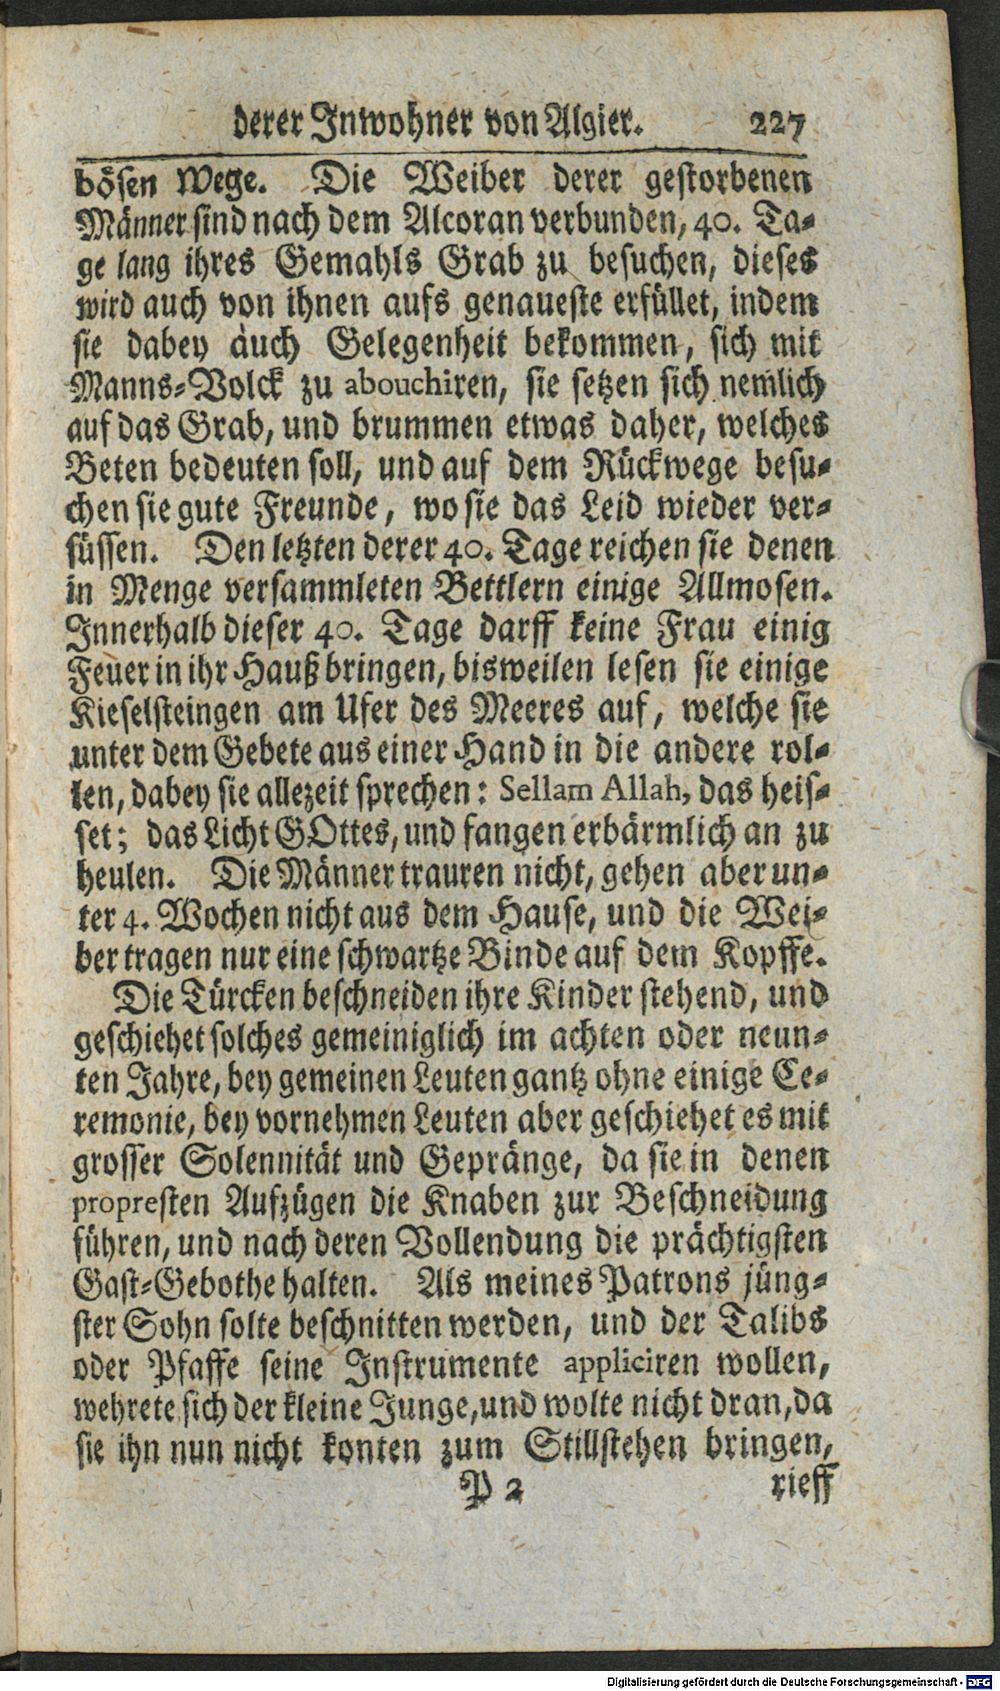 derer Inwohner von Algier. 227
bösen Wege. Die Weiber derer gestorbenen
Männer sind nach dem Alcoran verbunden, 40. Ta-
ge lang ihres Gemahls Grab zu besuchen, dieses
wird auch von ihnen aufs genaueste erfüllet, indem
sie dabey auch Gelegenheit bekommen, sich mit
Manns-Volck zu abouchiren, sie setzen sich nemlich
auf das Grab, und brummen etwas daher, welches
Beten bedeuten soll, und auf dem Rückwege besu-
chen sie gute Freunde, wo sie das Leid wieder ver-
süssen. Den letzten derer 40. Tage reichen sie denen
in Menge versammleten Bettlern einige Allmosen.
Innerhalb dieser 40. Tage darff keine Frau einig
Feuer in ihr Hauß bringen, bisweilen lesen sie einige
Kieselsteingen am Ufer des Meeres auf, welche sie
unter dem Gebete aus einer Hand in die andere rol-
len, dabey sie allezeit sprechen: Sellam Allah, das heis-
set; das Licht GOttes, und fangen erbärmlich an zu
heulen. Die Männer trauren nicht, gehen aber un-
ter 4. Wochen nicht aus dem Hause, und die Wei-
ber tragen nur eine schwartze Binde auf dem Kopffe.
Die Türcken beschneiden ihre Kinder stehend, und
geschiehet solches gemeiniglich im achten oder neun-
ten Jahre, bey gemeinen Leuten gantz ohne einige Ce-
remonie, bey vornehmen Leuten aber geschiehet es mit
grosser Solennität und Gepränge, da sie in denen
propresten Aufzügen die Knaben zur Beschneidung
führen, und nach deren Vollendung die prächtigsten
Gast-Gebothe halten. Als meines Patrons jüng-
ster Sohn solte beschnitten werden, und der Talibs
oder Pfaffe seine Instrumente appliciren wollen,
wehrete sich der kleine Junge, und wolte nicht dran, da
sie ihn nun nicht konten zum Stillstehen bringen,
P 2 rieff
Digitalisierung gefördert durch die Deutsche Forschungsgemeinschaft - DFG